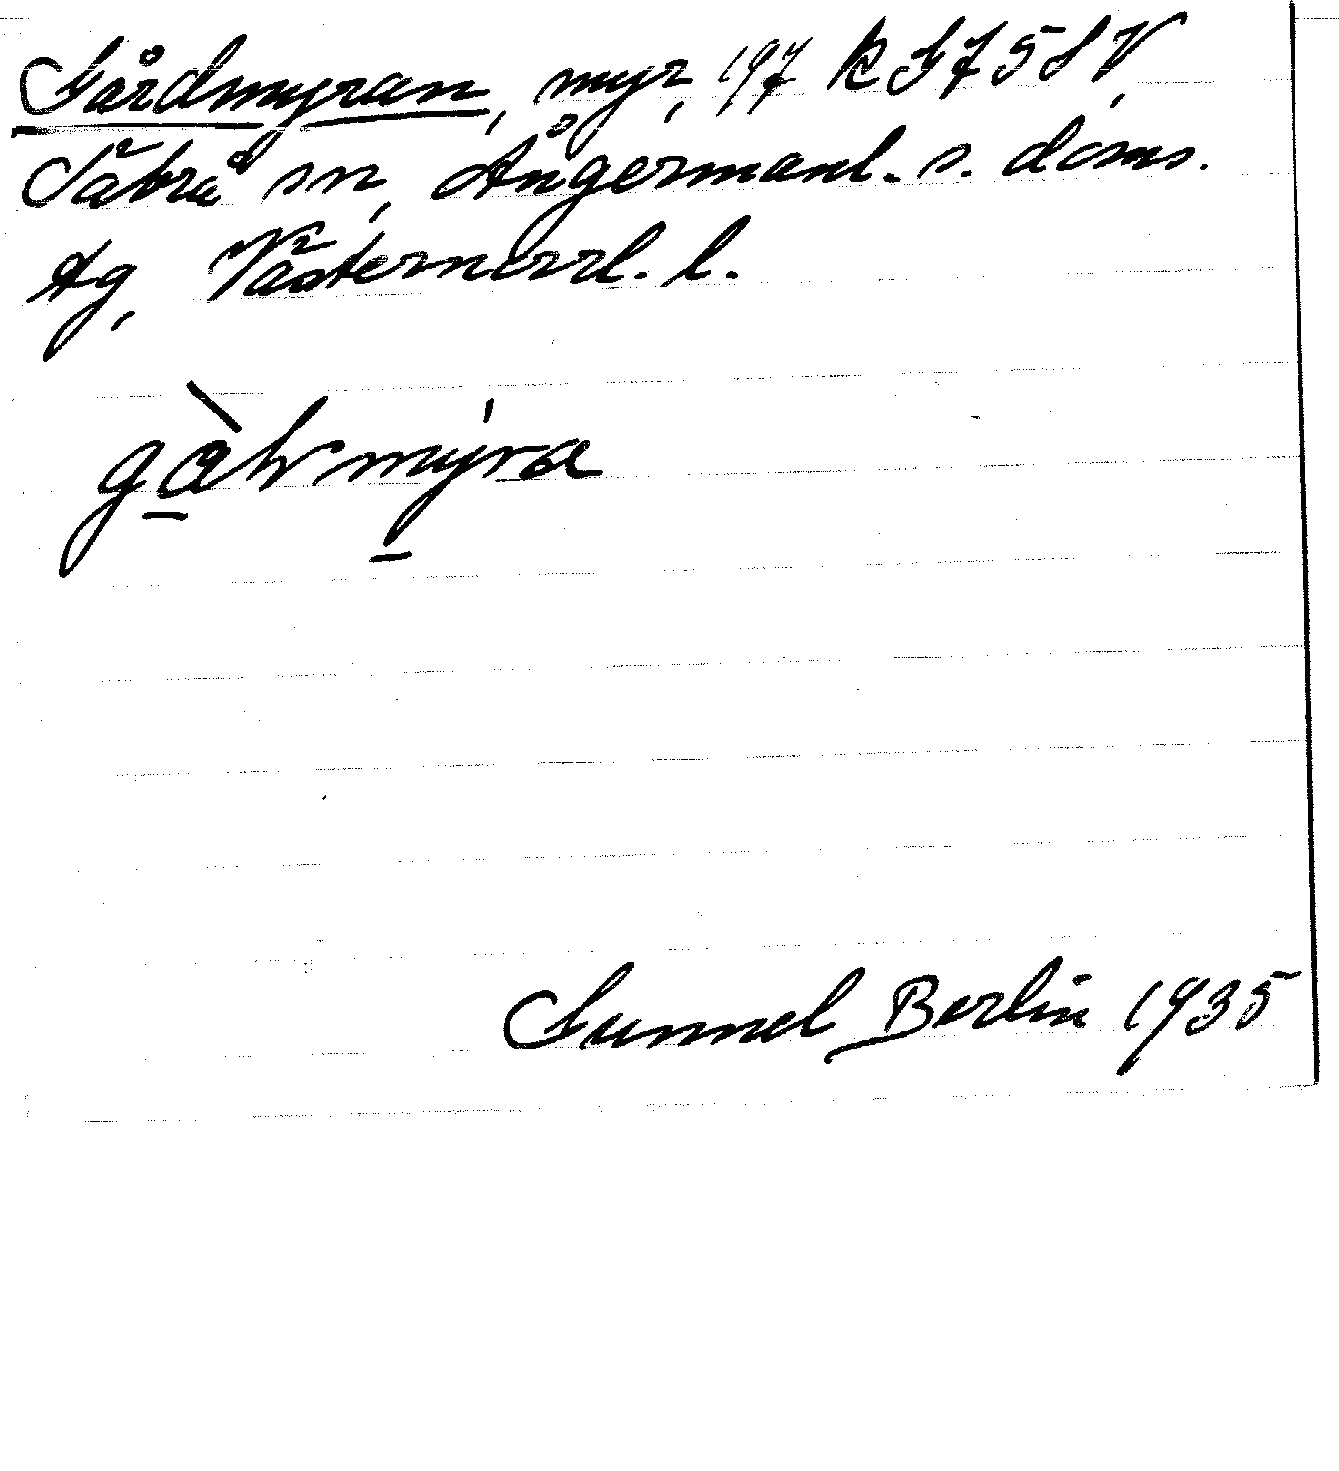 Gårdmyran, myr, 197 k G 7 5 S V,
Säbrå sn, Ångermanl. s. doms.
Ag, Västernorrl. l.
gàlrmýra
Gunnel Berlin 1935